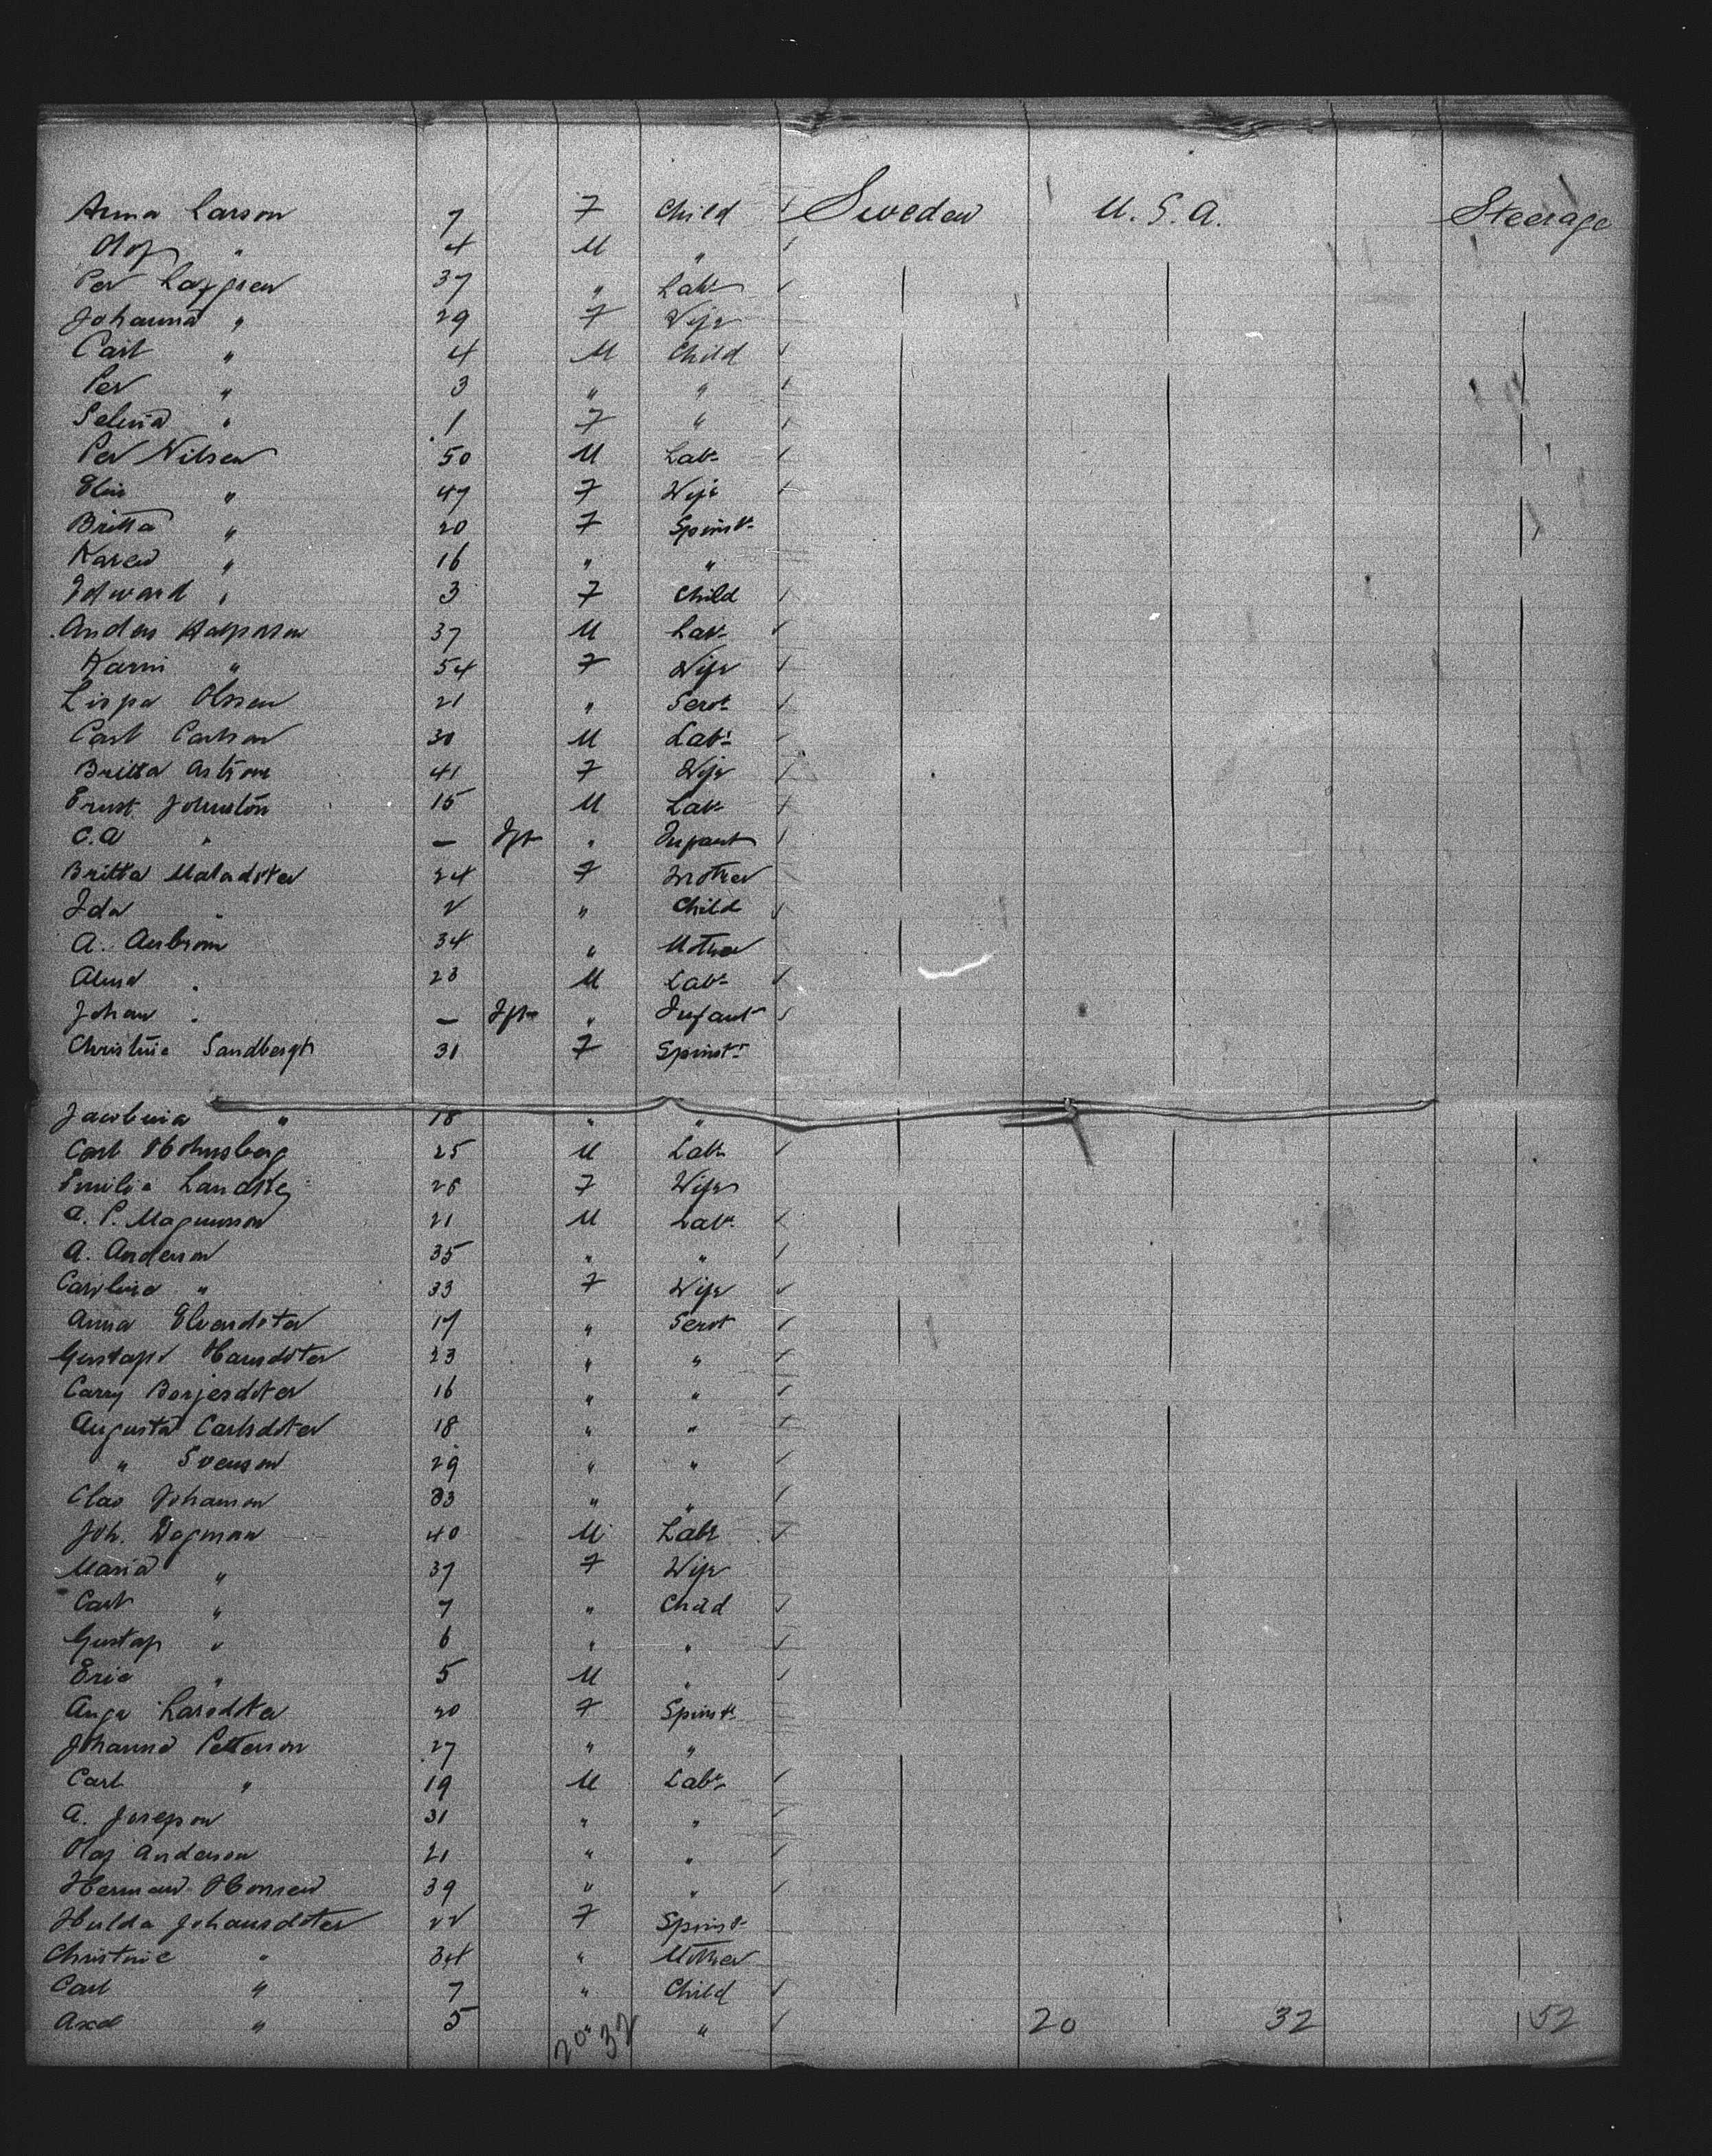 Anna Larson 7 F Child Sweden U.S.A. Steerage
Olof " 4 M "
Per Lofgren 37 " Labr
Johanna " 29 F Wife
Carl " 4 M Child
Per " 3 " "
Selma " 1 F "
Per Nilsen 50 M Labr
Elin " 47 F Wife
Britta " 20 F Spinstr
Karen " 16 " "
Edward " 3 F Child
Anders 37 M Labr
Karin " 54 F Wife
Olssen 21 " Servt
Carl Carlson 30 M Labr
Britta Astrom 41 F Wife
Ernst Johnston 15 M Labr
C.A " — Ift " Infant
Britta Matsdoter 24 F Mother
Ida " 2 " Child
A. 34 " Mother
" 23 M Labr
Johan " — Ift " Infant
Christine Sandbergh 31 F Spinstr
Jacobina " 18 " "
Carl 25 M Labr
Emilia 26 F Wife
A. P. Magnusson 21 M Labr
A. Anderson 35 " "
Carolina " 33 F Wife
Anna 17 " Servt
Gustafv Hansdoter 23 " "
Carry Borjesdoter 16 " "
Augusta Carlsdoter 18 " "
" Svenson 29 " "
Clas Johanson 33 " "
Joh. Dogman 40 M Labr
Maria " 37 F Wife
Carl " 7 " Child
Gustaf " 6 " "
Eric " 5 M "
Larsdoter 20 F Spinstr
Johanna Petterson 27 " "
Carl " 19 M Labr
A. Josepson 31 " "
Olaf Anderson 21 " "
Herman Honsen 39 " "
Hulda Johansdoter 22 F Spinstr
Christine " 34 " Mother
Carl " 7 " Child
Axel " 5 " " 20 32 52
20 32